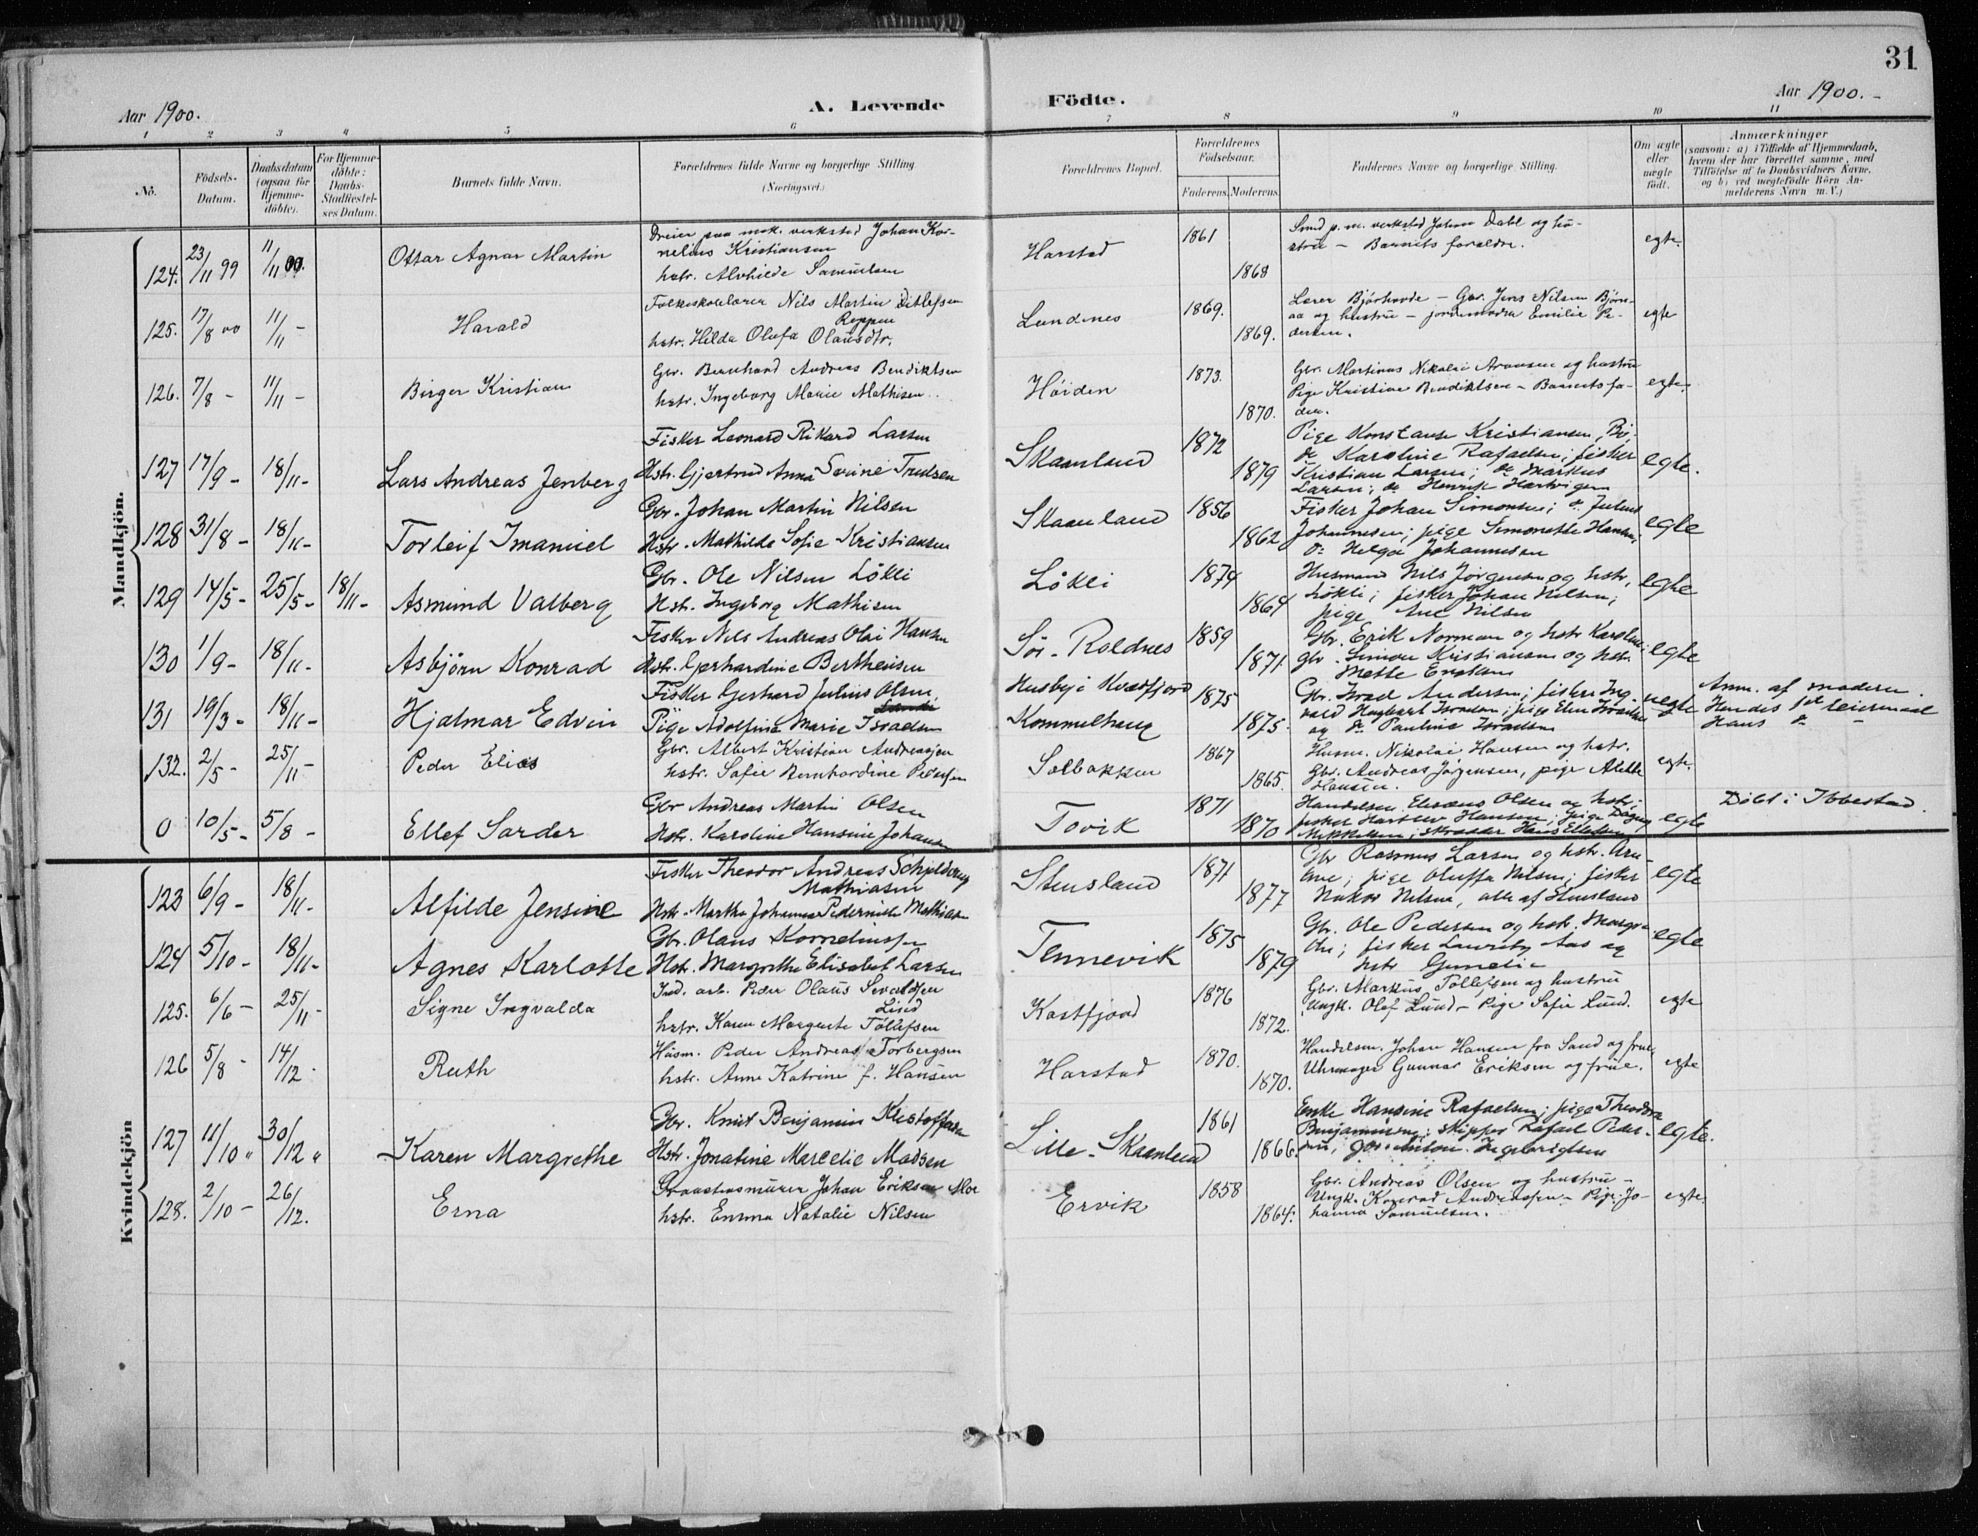 31
Aar 1900.
A. Levende Födte.
Aar 1900.-
1 2 3 4 5 6 7 8 9 10 11
No.
Födsels-
Datum.
Daabsdatum
(ogsaa for
Hjemme-
döbte).
For Hjemme-
döbte:
Daabs-
Stadfæstel-
ses Datum.
Barnets fulde Navn.
Forældrenes fulde Navne og borgerlige Stilling.
(Næringsvei.)
Forældrenes Bopæl.
Forældrenes
Födselsaar.
Faderens. Moderens.
Faddernes Navne og borgerlige Stilling.
Om ægte
eller
uægte
födt.
Anmærkninger
(saasom: a) i Tilfælde af Hjemmedaab,
hvem der har forrettet samme, med
Tilföielse af to Daabsvidners Navne,
og b) ved uægtefödte Börn An-
melderens Navn m. V.)
Mandkjön.
124. 23/11 99 11/11 00. Ottar Agnar Martin
Dreier paa mek. verksted Johan Kor-
nelius Kristiansen
hstr. Alvhilde Samuelsen
Harstad 1861 1868
Smed p. m. verksted Johan Dahl og hu-
stru - Barnets forældre.
egte.
125. 17/8 00 11/11 - Harald
Folkeskolelærer Nils Martin Ditlefsen
Reppen
hstr. Hilda Olufa Olausdtr.
Lundnes 1869. 1869.
Lærer Bjørhovde - Gbr. Jens Nilsen Bjørn-
aa og hustru - jordemodra Emilie Pe-
dersen.
egte
126. 7/8 - 11/11 - Birger Kristian
Gbr. Bernhard Andreas Bendiktsen
hstr. Ingeborg Marie Mathisen.
Høiden 1873. 1870.
Gbr. Martinus Nikolai Aronsen og hustru
Pige Kristine Bendiktsen - Barnets fa-
der.
egte.
127 17/9 - 18/11 - Lars Andreas Jenberg
Fisker Leonard Rikard Larsen
Hstr. Gjertrud Anna Severine Trulsen
Skaanland 1872 1879
Pige Konstanse Kristiansen, Bø,
do Karoline Rafaelsen; fisker
Kristian Larsen; do Markus
Larsen; do Henrik Hartvigsen
egte.
128 31/8 - 18/11 - Torleif Imanuel
Gbr. Johan Martin Nilsen
Hstr. Mathilde Sofie Kristiansen
Skaanland 1856 1862
Fisker Johan Simonsen; do Julius
Johannesen; pige Simonette Hansen;
do Helga Johannesen
egte
129 14/5 - 25/5 - 18/11 - Asmund Valberg
Gbr. Ole Nilsen Løkli
Hstr. Ingeborg Mathisen
Løkli 1874 1864
Husmand Nils Jørgensen og hstr,
Løkli; fisker Johan Nilsen;
pige Ane Nilsen
egte
130 1/9 - 18/11 - Asbjørn Konrad
Fisker Nils Andreas Olai Hansen
Hstr. Gjerhardine Bertheusen
Sør-Roldnes 1859 1871
Gbr. Erik Norman og hstr Karoline;
gbr. Simon Kristiansen og hstr.
Mette Eriksen
egte
131 19/3 - 18/11 - Hjalmar Edvin
Fisker Gerhard Julius Olsen,
Pige Adolfine Marie Israelsen
Husby i Kvædfjord
Kommelhaug
1875 1875.
Gbr. Israel Andersen; fisker Ing-
vald Hagbert Israelsen; pige Elen Israelsen
og do Pauline Israelsen
uegte
Anm. af moderen.
Hendes 1ste leiermaal
Hans do -
132. 2/5 - 25/11 - Peder Elias
Gbr. Albert Kristian Andreassen
hstr. Sofie Bernhardine Pedersen
Solbakken 1867 1865.
Husm. Nikolai Hansen og hstr.
Gbr. Andreas Jørgensen, pige Alette
Hansen.
egte.
0 10/5 - 5/8 - Ellef Sørder
Gbr Andreas Martin Olsen
Hstr. Karoline Hansine Johansen
Tovik 1871 1870
Handelsm. Olsen og hstr;
fisker Hartlev Hansen; pige Dagny
Mikkelsen; skrædder Hans Ellefsen
egte
Døbt i Ibbestad.
Kvindekjön
123 6/9 - 18/11 - Alfilde Jensine
Fisker Theodor Andreas Schjelderup
Mathiasen
Hstr. Martha Johanna Pedernille Mathisen
Stensland 1871 1877
Gbr Rasmus Larsen og hstr. Ane-
Ane; pige Oluffa Nilsen; fisker
Nikor Nilsen, alle af Stensland
egte
124 5/10 - 18/11 - Agnes Karlotte
Gbr. Olaus Kornelinssen
Hstr. Margrethe Elisabet Larsen
Tennevik 1875 1879
Gbr. Ole Pedersen og hstr. Margre-
the; fisker Lauritz Aas og
hstr Gunelie
egte
125. 6/6 - 25/11 - Signe Ingvalda
Ind. arb. Peder Olaus Sivaldsen
Lund
hstr. Karen Margrete Tollefsen
Kastfjord 1876 1872.
Gbr. Markus Tollefsen og hustru
Ungk. Olof Lund - Pige Sofie Lund.
egte
126 5/8 - 14/12 - Ruth
Husm. Peder Andreas Torbergsen
hstr. Anne Katrine f. Hansen
Harstad 1870. 1870.
Handelsm. Johan Hansen fra Sand og frue,
Uhrmager Gunnar Eriksen og frue.
egte
127 11/10 " 30/12 " Karen Margrethe
Gbr. Knut Benjamin Kristoffersen
Hstr. Jonatine Marcelie Madsen
Lille-Skaanland 1861 1866.
Enke Hansine Rafaelsen; pige Theodora
Benjaminsen; skipper Rafael Peder-
sen; gbr. Anton Ingebrigtsen
egte.
128. 2/10 - 26/12. Erna
Graastensmurer Johan Eriksen Moe
hstr. Emma Natalie Nilsen
Ervik 1858 1864.
Gbr. Andreas Olsen og hustru -
Ungk. Konrad Andreassen - Pige Jo-
hanna Samuelsen.
egte.